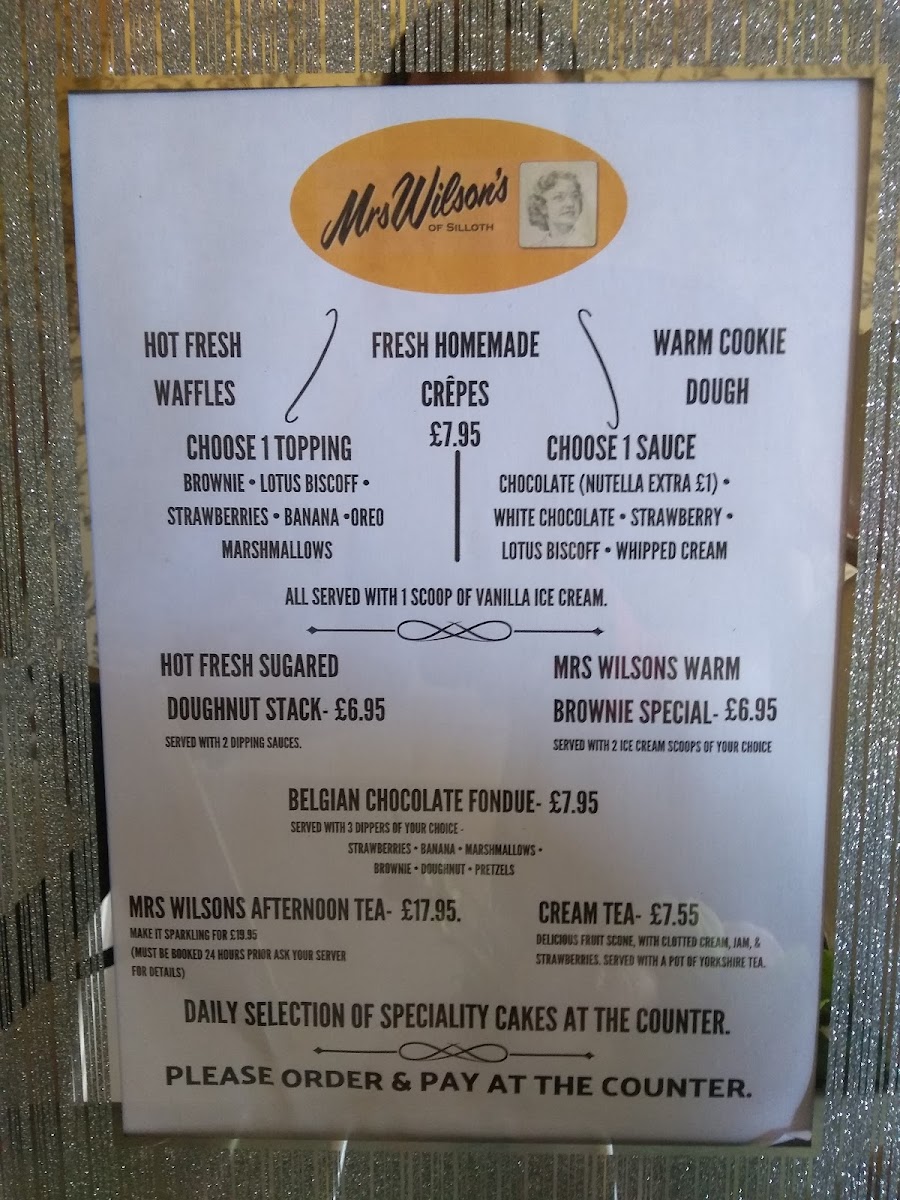 Mrs Wilson's
OF SILLOTH
HOT FRESH
WAFFLES
FRESH HOMEMADE
CRÊPES
£7.95
WARM COOKIE
DOUGH
CHOOSE 1 TOPPING
BROWNIE • LOTUS BISCOFF •
STRAWBERRIES • BANANA •OREO
MARSHMALLOWS
CHOOSE 1 SAUCE
CHOCOLATE (NUTELLA EXTRA £1) •
WHITE CHOCOLATE • STRAWBERRY •
LOTUS BISCOFF • WHIPPED CREAM
ALL SERVED WITH 1 SCOOP OF VANILLA ICE CREAM.
HOT FRESH SUGARED
DOUGHNUT STACK- £6.95
SERVED WITH 2 DIPPING SAUCES.
MRS WILSONS WARM
BROWNIE SPECIAL- £6.95
SERVED WITH 2 ICE CREAM SCOOPS OF YOUR CHOICE
BELGIAN CHOCOLATE FONDUE- £7.95
SERVED WITH 3 DIPPERS OF YOUR CHOICE -
STRAWBERRIES • BANANA • MARSHMALLOWS •
BROWNIE • DOUGHNUT • PRETZELS
MRS WILSONS AFTERNOON TEA- £17.95.
MAKE IT SPARKLING FOR £19.95
(MUST BE BOOKED 24 HOURS PRIOR ASK YOUR SERVER
FOR DETAILS)
CREAM TEA- £7.55
DELICIOUS FRUIT SCONE, WITH CLOTTED CREAM, JAM, &
STRAWBERRIES. SERVED WITH A POT OF YORKSHIRE TEA.
DAILY SELECTION OF SPECIALITY CAKES AT THE COUNTER.
PLEASE ORDER & PAY AT THE COUNTER.